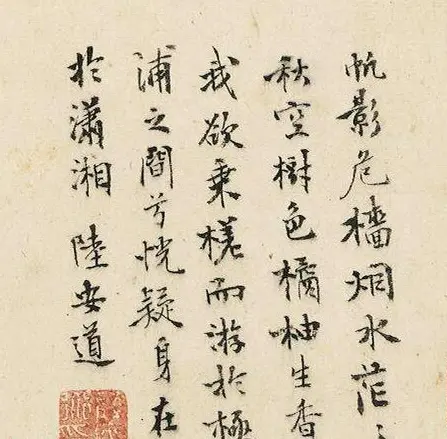 帆影危檣烟水茫
秋空樹色橘柚生香
我欲乗槎而游於極
浦之間兮恍疑身在
於瀟湘 陸安道